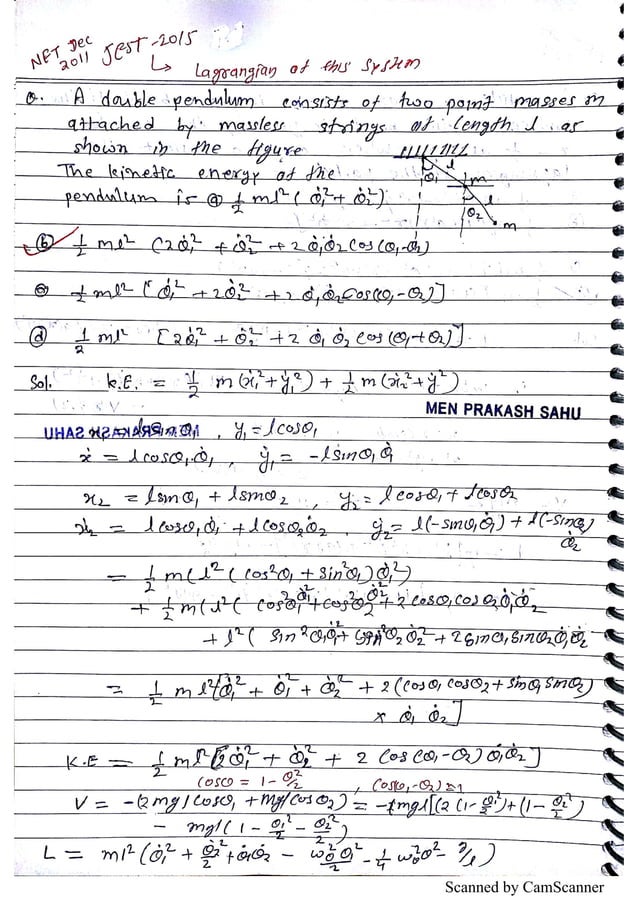 NET Dec 2011 JEST-2015
↳ Lagrangian of this system
Q. A double pendulum consists of two point masses m
attached by massless strings of length l as
shown in the figure
The kinetic energy of the
pendulum is (a) 1/2 ml² (θ̇₁² + θ̇₂²)
l
θ₁
m
l
θ₂
m
(b) 1/2 ml² (2θ̇₁² + θ̇₂² + 2θ̇₁θ̇₂ cos(θ₁-θ₂)
1/2 ml² [θ̇₁² + 2θ̇₂² + 2 θ̇₁θ̇₂ cos(θ₁-θ₂)]
(d) 1/2 ml² [2θ̇₁² + θ̇₂² + 2 θ̇₁ θ̇₂ cos(θ₁+θ₂)]
Sol. K.E. = 1/2 m(ẋ₁²+ẏ₁²) + 1/2 m(ẋ₂²+ẏ²)
MEN PRAKASH SAHU
, y₁ = l cosθ₁
ẋ = l cosθ₁ θ̇₁ , ẏ₁ = -l sinθ₁ θ̇
x₂ = l sinθ₁ + l sinθ₂ , y₂ = l cosθ₁ + l cosθ₂
ẋ₂ = l cosθ₁ θ̇₁ + l cosθ₂ θ̇₂ , ẏ₂ = l(-sinθ₁ θ̇₁) + l(-sinθ₂) θ̇₂
= 1/2 m(l²(cos²θ₁ + sin²θ₁)θ̇₁²)
+ 1/2 m(l²(cos²θ₁ θ̇₁² + cos²θ₂ θ̇₂² + 2 cosθ₁ cosθ₂ θ̇₁ θ̇₂
+ l²(sin²θ₁ θ̇₁² + sin²θ₂ θ̇₂² + 2 sinθ₁ sinθ₂ θ̇₁ θ̇₂
= 1/2 m l² [θ̇₁² + θ̇₁² + θ̇₂² + 2(cosθ₁ cosθ₂ + sinθ₁ sinθ₂)
× θ̇₁ θ̇₂]
K.E = 1/2 ml² [2θ̇₁² + θ̇₂² + 2 cos(θ₁-θ₂) θ̇₁θ̇₂]
cosθ = 1 - θ²/2 , cos(θ₁-θ₂) ≈ 1
V = -(2mgl cosθ₁ + mgl cosθ₂) = -mgl[(2(1-θ₁²/2) + (1-θ₂²/2)
- mgl(1 - θ₁²/2 - θ₂²/2)
L = ml² (θ̇₁² + θ̇₂²/2 + θ̇₁θ̇₂
Scanned by CamScanner